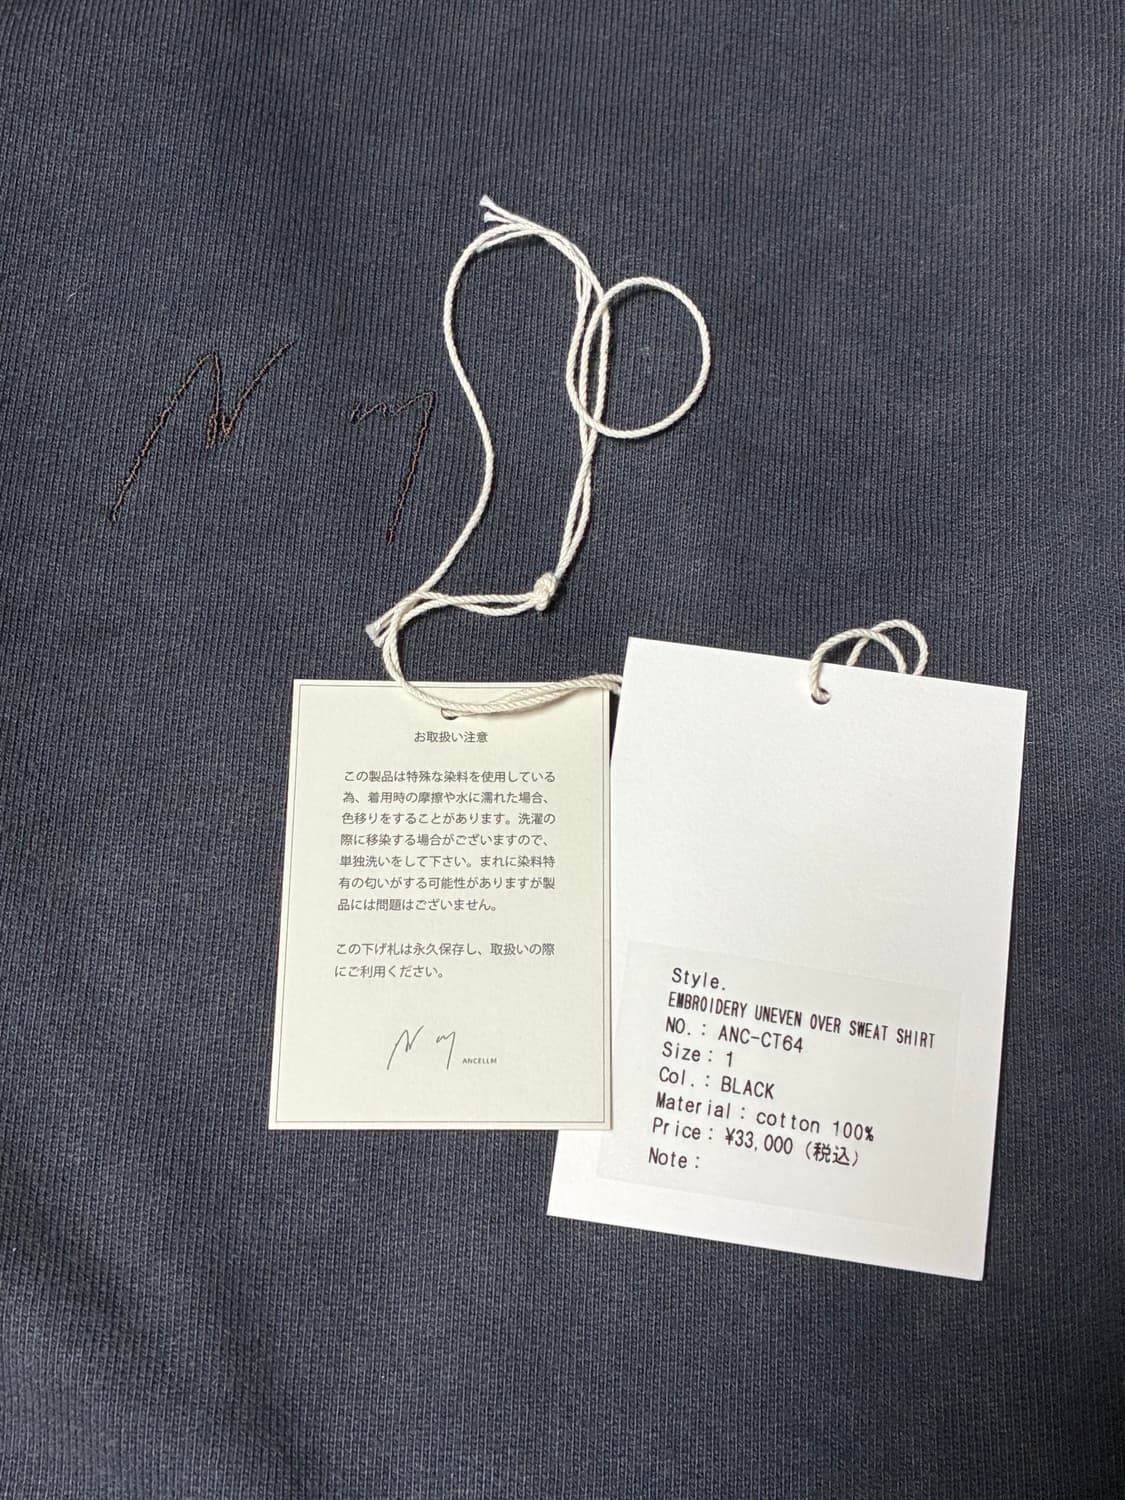 お取扱い注意
この製品は特殊な染料を使用している
為、着用時の摩擦や水に濡れた場合、
色移りをすることがあります。洗濯の
際に移染する場合がございますので、
単独洗いをして下さい。まれに染料特
有の匂いがする可能性がありますが製
品には問題はございません。
この下げ札は永久保存し、取扱いの際
にご利用ください。
ANCELLM
Style.
EMBROIDERY UNEVEN OVER SWEAT SHIRT
NO.: ANC-CT64
Size: 1
Col.: BLACK
Material: cotton 100%
Price: ¥33,000 (税込)
Note: